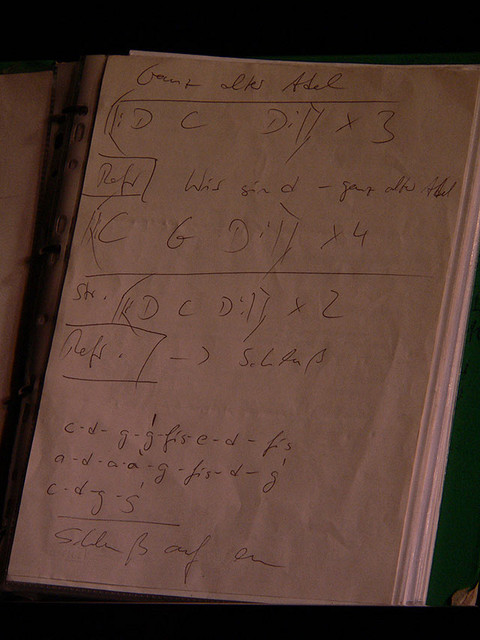 Ganz alter Adel
(|: D C D :|) x 3
Refr Wir sind - ganz alter Adel
(|: C G D :|) x4
Str. (|: D C D :|) x 2
Refr. -> Schluß
c-d-g-g'-fis-e-d-fis
a-d-a-a'-g-fis-d-g'
c-d-g-g'
Schluß auf em